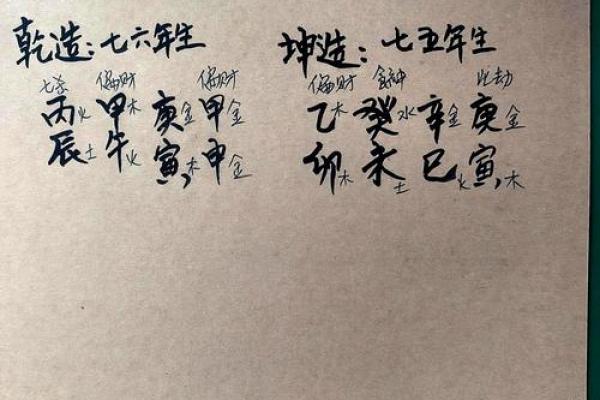 乾造：七六年生
坤造：七五年生
七杀 偏财 偏财
丙火 甲木 庚金 甲金
辰土 午火 寅木 申金
偏财 食神 比劫
乙木 癸水 辛金 庚金
卯木 未土 巳火 寅木